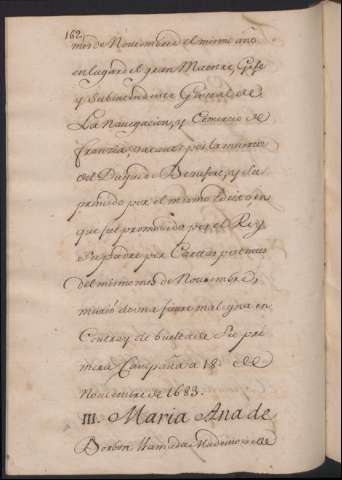 162.
mes de Noviembre el mismo año
en lugar del gran Maestre, Gefe
y Subintendente General de
La Navegacion, y Comercio de
Franzia, vacante por la muerte
del Duque de Beaufort, y su
primido por el mismo Edicto en
que fue promovido por el Rey
Su padre por Cartas patentes
del mismo mes de Noviembre,
murió de una fiebre maligna en
Contray de buelta de Su pri
mera Campaña a 18. de
Noviembre de 1683.
III. Maria Ana de
Borbon llamada Mademoisele